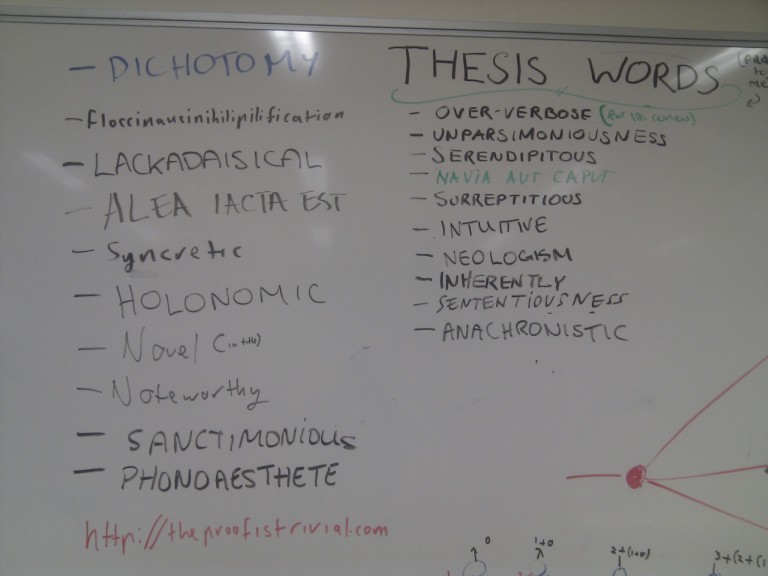 THESIS WORDS
- DICHOTOMY
- floccinaucinihilipilification
- LACKADAISICAL
- ALEA IACTA EST
- Syncretic
- HOLONOMIC
- Novel (in title)
- Noteworthy
- SANCTIMONIOUS
- PHONOAESTHETE
http://theproofistrivial.com
- OVER-VERBOSE
- UNPARSIMONIOUSNESS
- SERENDIPITOUS
- NAVIA AUT CAPUT
- SURREPTITIOUS
- INTUITIVE
- NEOLOGISM
- INHERENTLY
- SENTENTIOUSNESS
- ANACHRONISTIC
to
me
0
1+0
2+(1+0)
3+(2+(1